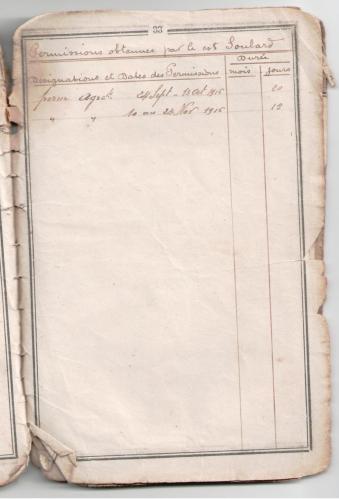 33
Permissions obtenues par le cst Soulard
Désignations et Dates des Permissions
Durée
mois jours
perm Agrcle 24 Sept - 13 Oct 1916 20
" " 10 au 24 Nov 1916